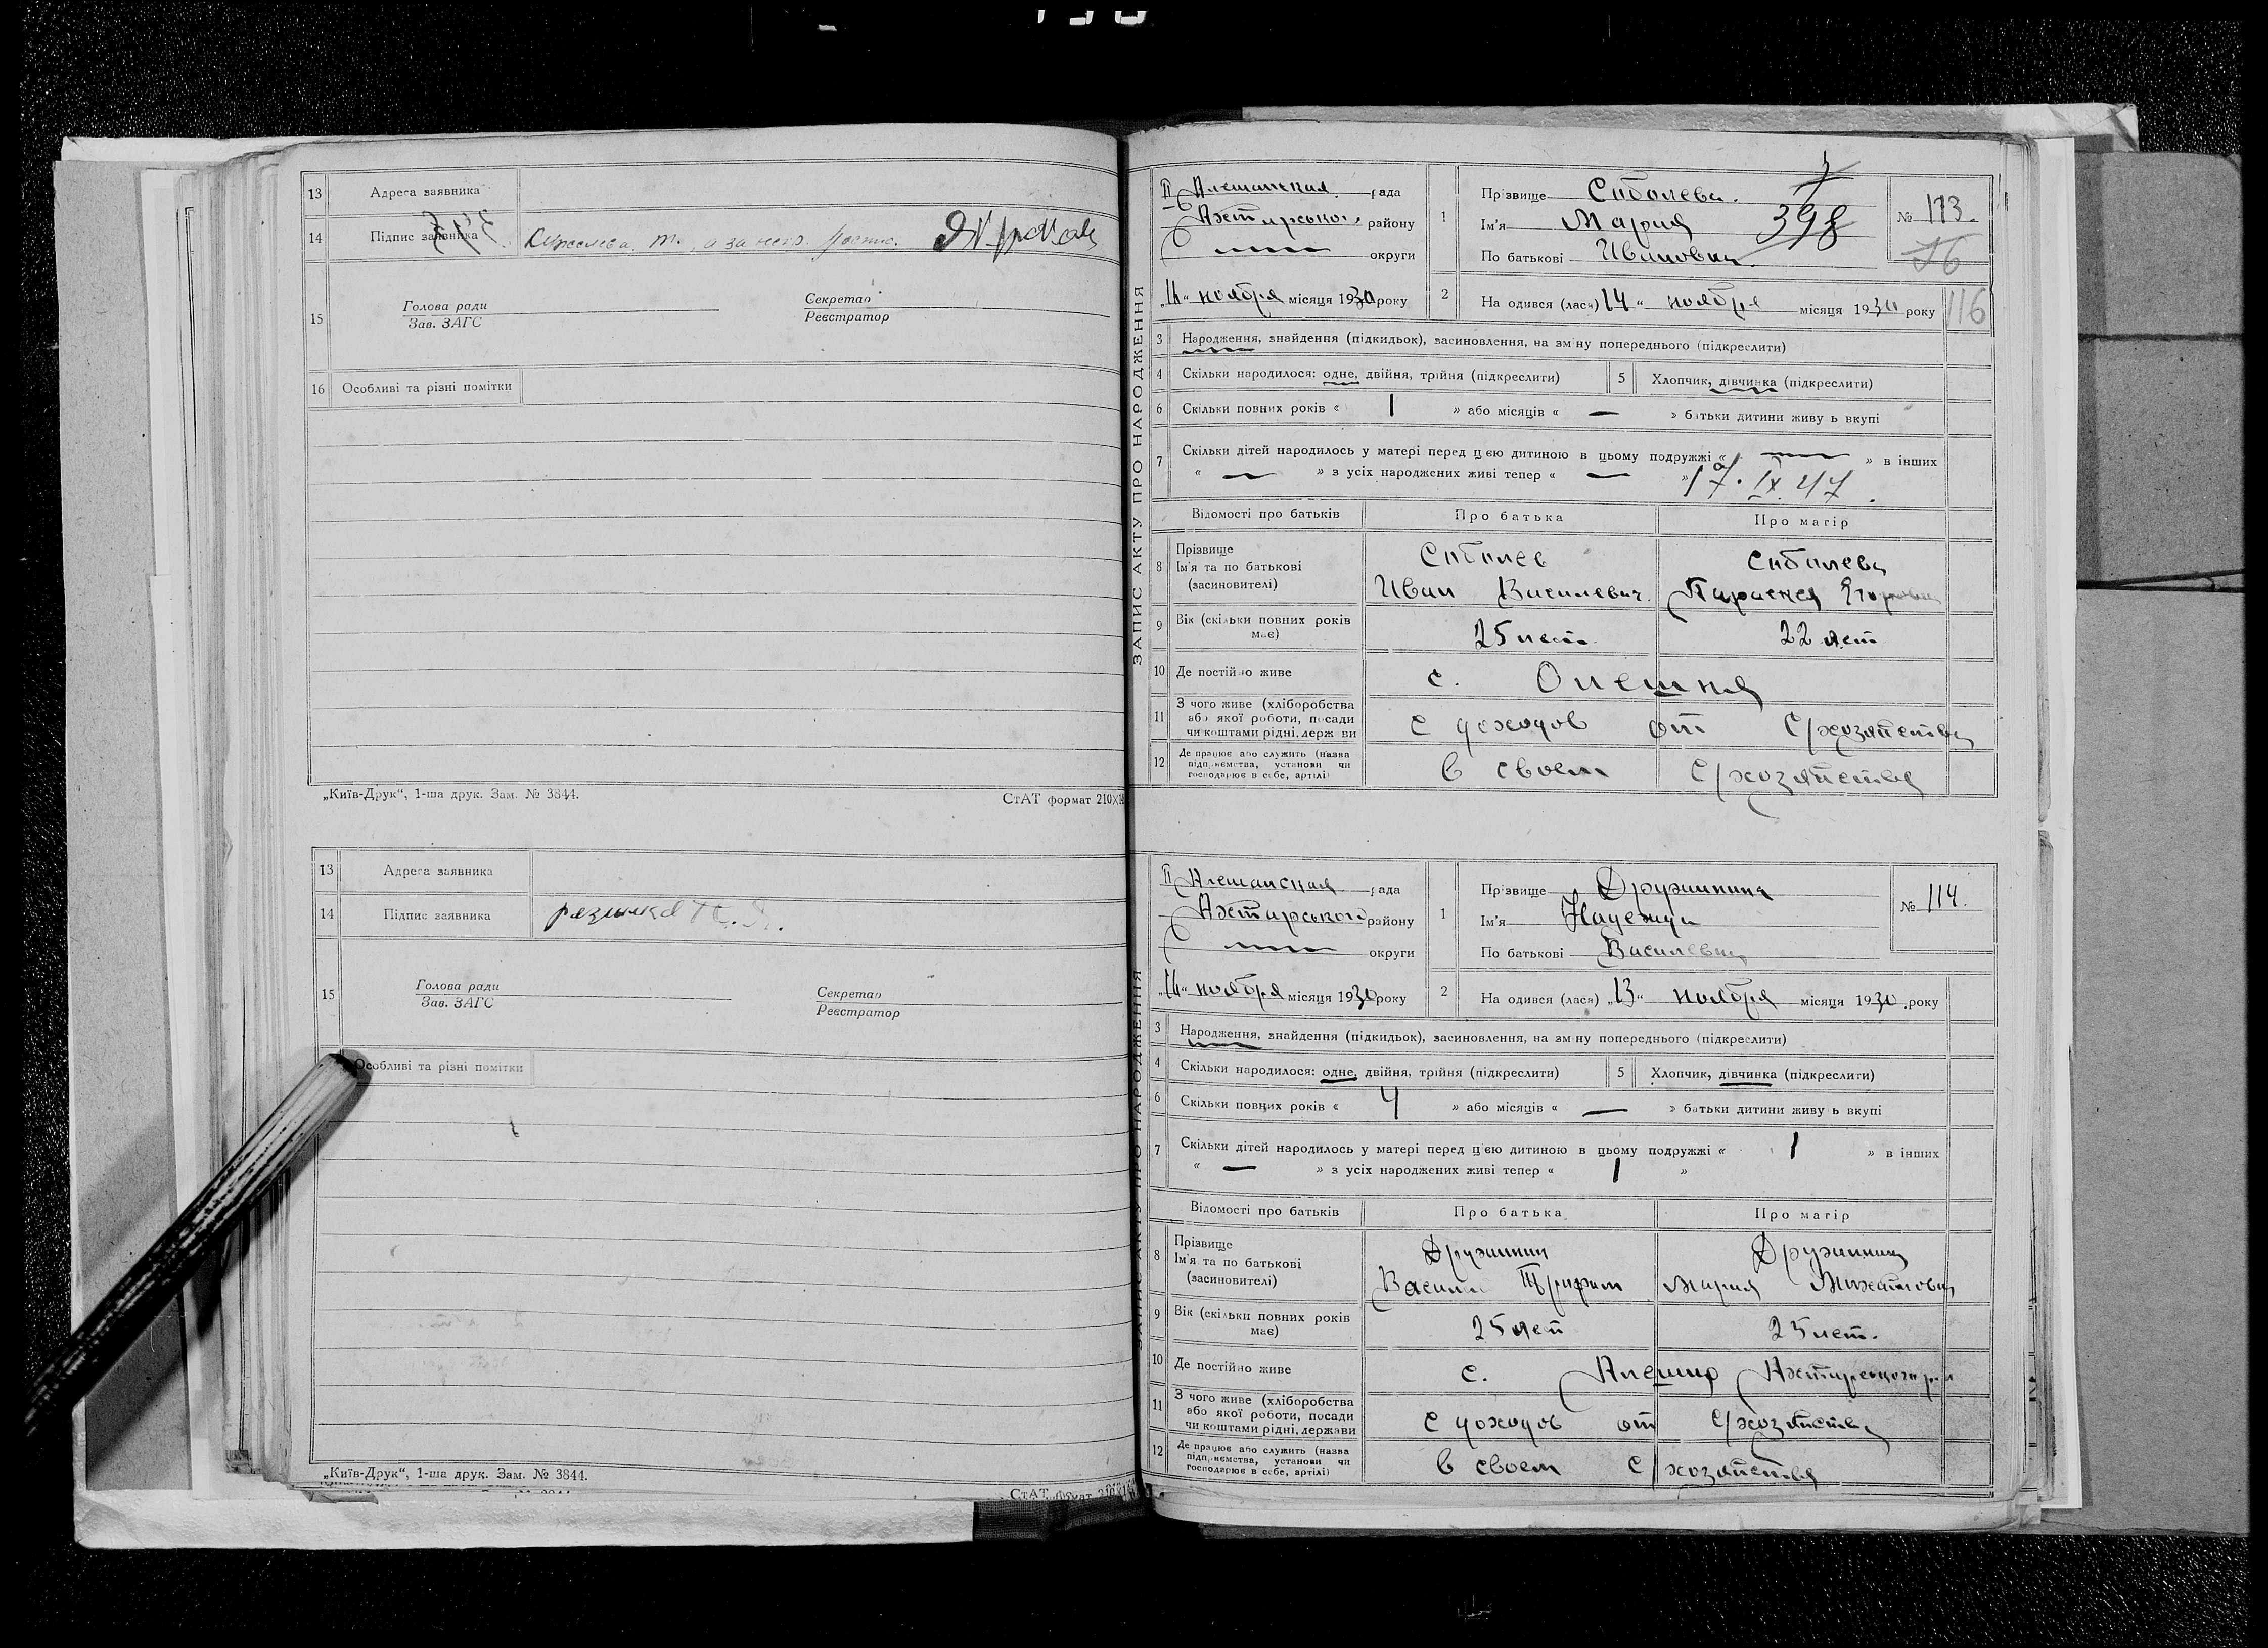 13 Адреса заявника
14 Підпис заявника а за него
15 Голова ради Секретар
Зав. ЗАГС Реєстратор
16 Особливі та різні помітки
„Київ-Друк“, 1-ша друк. Зам. № 3844.
СтАТ формат 210×
13 Адреса заявника
14 Підпис заявника
15 Голова ради Секретар
Зав. ЗАГС Реєстратор
Особливі та різні помітки
„Київ-Друк“, 1-ша друк. Зам. № 3844.
СтАТ
ЗАПИС АКТУ ПРО НАРОДЖЕННЯ
II Алешанская рада
Ахтирського району
округи
„14“ ноября місяця 1930 року
1 Прізвище Соболева
Ім'я Мария 398
По батькові Ивановна
№ 113.
16
2 Народився (лася) 14“ ноября місяця 1930 року
116
3 Народження, знайдення (підкидьок), засиновлення, на зміну попереднього (підкреслити)
4 Скільки народилося: одне, двійня, трійня (підкреслити) 5 Хлопчик, дівчинка (підкреслити)
6 Скільки повних років « 1 » або місяців « — » батьки дитини живуть вкупі
7 Скільки дітей народилось у матері перед цією дитиною в цьому подружжі « — » в інших
« — » з усіх народжених живі тепер « — »
17. IX 47.
Відомості про батьків Про батька Про матір
8 Прізвище Соболев Соболева
Ім'я та по батькові
(засиновителі) Иван Василевич Параскея Егоровна
9 Вік (скільки повних років має) 25 лет 22 лет
10 Де постійно живе с. Олешня
11 З чого живе (хліборобства або якої роботи, посади чи коштами рідні, держави с доходов от С/хозяйства
12 Де працює або служить (назва підприємства, установи чи господарює в себе, артілі) в своем С/хозяйства
ЗАПИС АКТУ ПРО НАРОДЖЕННЯ
II Алешанская рада
Ахтирського району
округи
„14“ ноября місяця 1930 року
1 Прізвище Дружинина
Ім'я Надежда
По батькові Василевна
№ 114.
2 Народився (лася) „13“ ноября місяця 1930 року
3 Народження, знайдення (підкидьок), засиновлення, на зміну попереднього (підкреслити)
4 Скільки народилося: одне, двійня, трійня (підкреслити) 5 Хлопчик, дівчинка (підкреслити)
6 Скільки повних років « 4 » або місяців « — » батьки дитини живуть вкупі
7 Скільки дітей народилось у матері перед цією дитиною в цьому подружжі « 1 » в інших
« — » з усіх народжених живі тепер « 1 »
Відомості про батьків Про батька Про матір
8 Прізвище Дружинин Дружинина
Ім'я та по батькові
(засиновителі) Васили Трифон Мария Михайловна
9 Вік (скільки повних років має) 25 лет 25 лет.
10 Де постійно живе с. Ахтирского
11 З чого живе (хліборобства або якої роботи, посади чи коштами рідні, держави с доходов от С/хозяйства
12 Де працює або служить (назва підприємства, установи чи господарює в себе, артілі) в своем С/хозяйства